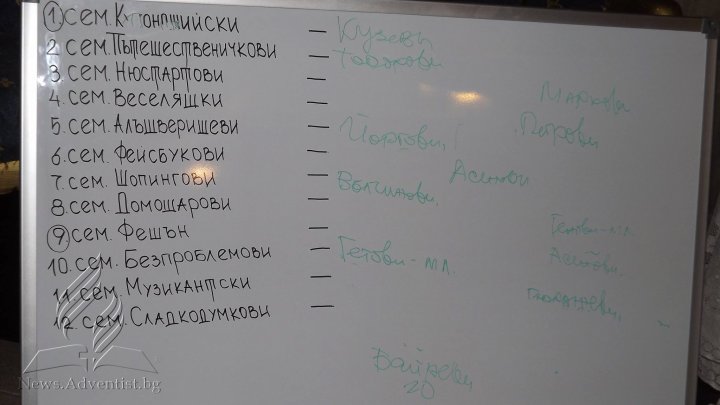 1. сем. Купонджийски – Кузеви
2. сем. Пътешественичкови –
3. сем. Нюстартови
4. сем. Веселяшки – Маркови
5. сем. Алъшверишеви – Петрови
6. сем. Фейсбукови –
7. сем. Шопингови – Асенови
8. сем. Домошарови –
9. сем. Фешън –
10. сем. Безпроблемови – Гетови-мл.
11. сем. Музикантски –
12. сем. Сладкодумкови –
Байреви
20
News.Adventist.bg